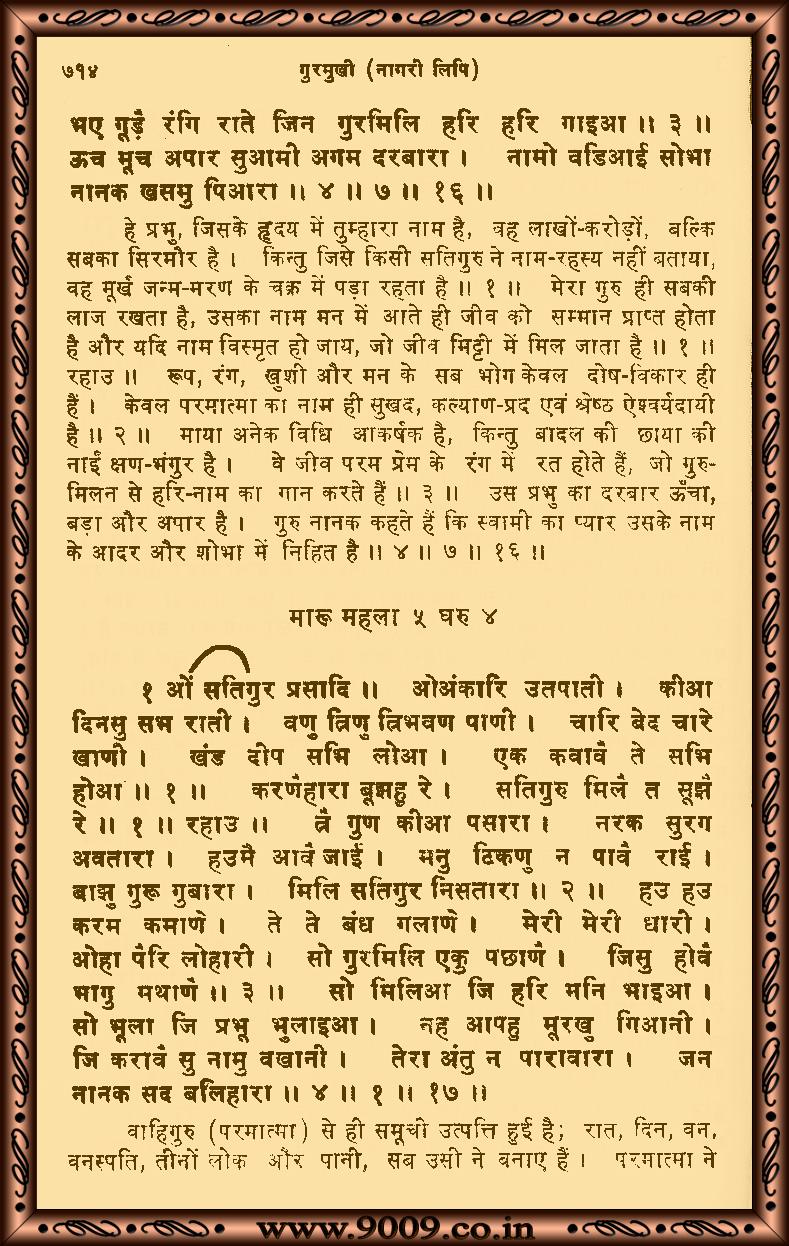 ७१४ गुरमुखी (नागरी लिपि)
भए गूड़ै रंगि राते जिन गुरमिलि हरि हरि गाइआ ॥ ३ ॥
ऊच मूच अपार सुआमी अगम दरबारा । नामो वडिआई सोभा
नानक खसमु पिआरा ॥ ४ ॥ ७ ॥ १६ ॥
हे प्रभु, जिसके हृदय में तुम्हारा नाम है, वह लाखों-करोड़ों, बल्कि
सबका सिरमौर है । किन्तु जिसे किसी सतिगुरु ने नाम-रहस्य नहीं बताया,
वह मूर्ख जन्म-मरण के चक्र में पड़ा रहता है ॥ १ ॥ मेरा गुरु ही सबकी
लाज रखता है, उसका नाम मन में आते ही जीव को सम्मान प्राप्त होता
है और यदि नाम विस्मृत हो जाय, जो जीव मिट्टी में मिल जाता है ॥ १ ॥
रहाउ ॥ रूप, रंग, खुशी और मन के सब भोग केवल दोष-विकार ही
हैं । केवल परमात्मा का नाम ही सुखद, कल्याण-प्रद एवं श्रेष्ठ ऐश्वर्यदायी
है ॥ २ ॥ माया अनेक विधि आकर्षक है, किन्तु बादल की छाया की
नाईं क्षण-भंगुर है । वे जीव परम प्रेम के रंग में रत होते हैं, जो गुरु-
मिलन से हरि-नाम का गान करते हैं ॥ ३ ॥ उस प्रभु का दरबार ऊँचा,
बड़ा और अपार है । गुरु नानक कहते हैं कि स्वामी का प्यार उसके नाम
के आदर और शोभा में निहित है ॥ ४ ॥ ७ ॥ १६ ॥
मारू महला ५ घरु ४
१ ओं सतिगुर प्रसादि ॥ ओअंकारि उतपाती । कीआ
दिनसु सभ राती । वणु त्रिणु त्रिभवण पाणी । चारि बेद चारे
खाणी । खंड दीप सभि लोआ । एक कवावै ते सभि
होआ ॥ १ ॥ करणैहारा बूझहु रे । सतिगुरु मिलै त सूझै
रे ॥ १ ॥ रहाउ ॥ त्रै गुण कीआ पसारा । नरक सुरग
अवतारा । हउमै आवै जाई । मनु टिकणु न पावै राई ।
बाझु गुरू गुबारा । मिलि सतिगुर निसतारा ॥ २ ॥ हउ हउ
करम कमाणे । ते ते बंध गलाणे । मेरी मेरी धारी ।
ओहा पैरि लोहारी । सो गुरमिलि एकु पछाणै । जिसु होवै
भागु मथाणै ॥ ३ ॥ सो मिलिआ जि हरि मनि भाइआ ।
सो भूला जि प्रभू भुलाइआ । नह आपहु मूरखु गिआनी ।
जि करावै सु नामु वखानी । तेरा अंतु न पारावारा । जन
नानक सद बलिहारा ॥ ४ ॥ १ ॥ १७ ॥
वाहिगुरु (परमात्मा) से ही समूची उत्पत्ति हुई है; रात, दिन, वन,
वनस्पति, तीनों लोक और पानी, सब उसी ने बनाए हैं । परमात्मा ने
www.9009.co.in